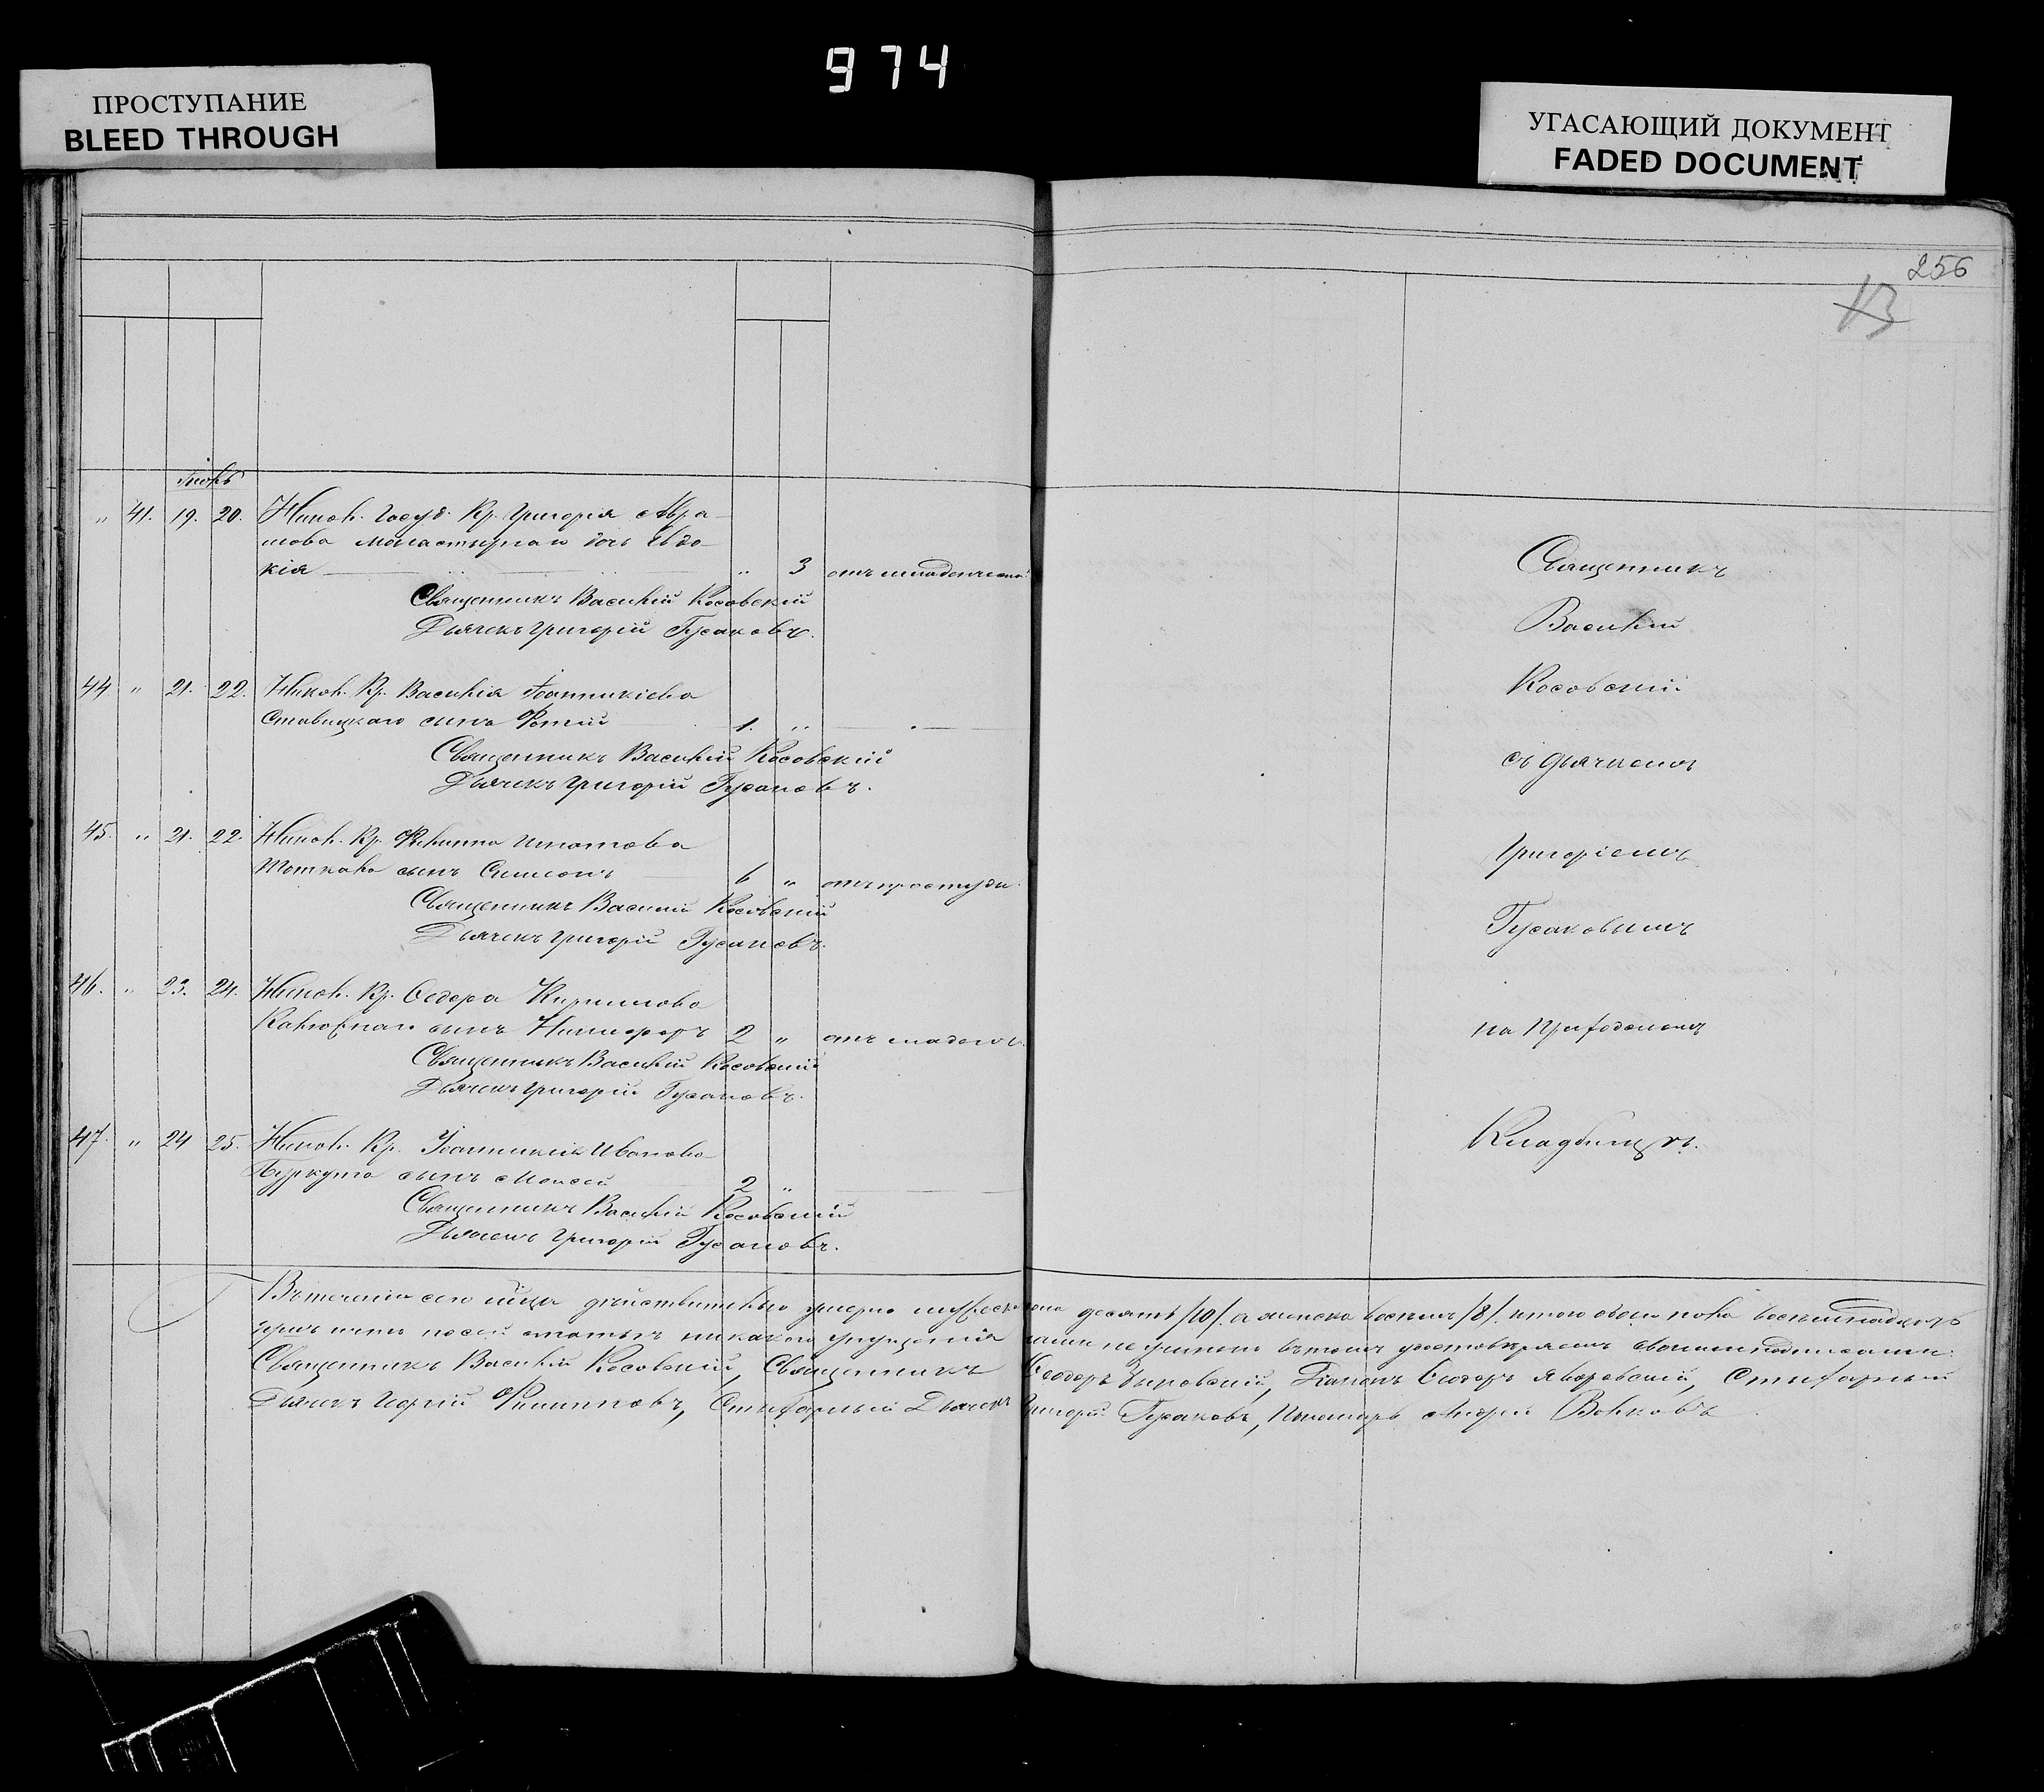 974
ПРОСТУПАНИЕ
BLEED THROUGH
УГАСАЮЩИЙ ДОКУМЕНТ
FADED DOCUMENT
256
13
Іюль
" 41. 19. 20. Николь. Госуд. Кр. Григорія Авра-
мова Монастырнаго дочь Евдо-
кія " 3 отъ младенческой
Священникъ Василій Косовскій
Дьячекъ Григорій Гусаковъ.
44 " 21. 22. Николь. Кр. Василія Іоанникіева
Ставицкаго сынъ Фотій 1. "
Священникъ Василій Косовскій
Дьячекъ Григорій Гусаковъ.
45. " 21. 22. Николь. Кр. Филиппа Игнатова
сынъ Симеонъ 6 " отъ простуды.
Священникъ Василій Косовскій
Дьячекъ Григорій Гусаковъ.
46. " 23. 24. Николь. Кр. Ѳедора Кирилова
сынъ Никифоръ 2 " отъ
Священникъ Василій Косовскій
Дьячекъ Григорій Гусаковъ.
47. " 24 25. Николь. Кр. Іоанникія Иванова
Буркута сынъ Моисей 2 "
Священникъ Василій Косовскій
Дьячекъ Григорій Гусаковъ.
Священникъ
Василій
Косовскій
съ дьячкомъ
Григоріемъ
Гусаковымъ
на Приходскомъ
Кладбищѣ.
Въ теченіи сего м҃ца дѣйствительно умерло мужеска пола десять /10/. а женска восемь /8/. итого обоего пола восемнадцать
статьяхъ никакого упущенія нами не учинено въ томъ удостовѣряемъ своими подписами:
Священникъ Василій Косовскій, Священникъ Ѳеодоръ Дьяконъ Ѳеодоръ Яворовскій, Стихарный
Дьячекъ Филипповъ, Стихарный Дьячекъ Григорій Гусаковъ, Пономарь Андрей Волковъ